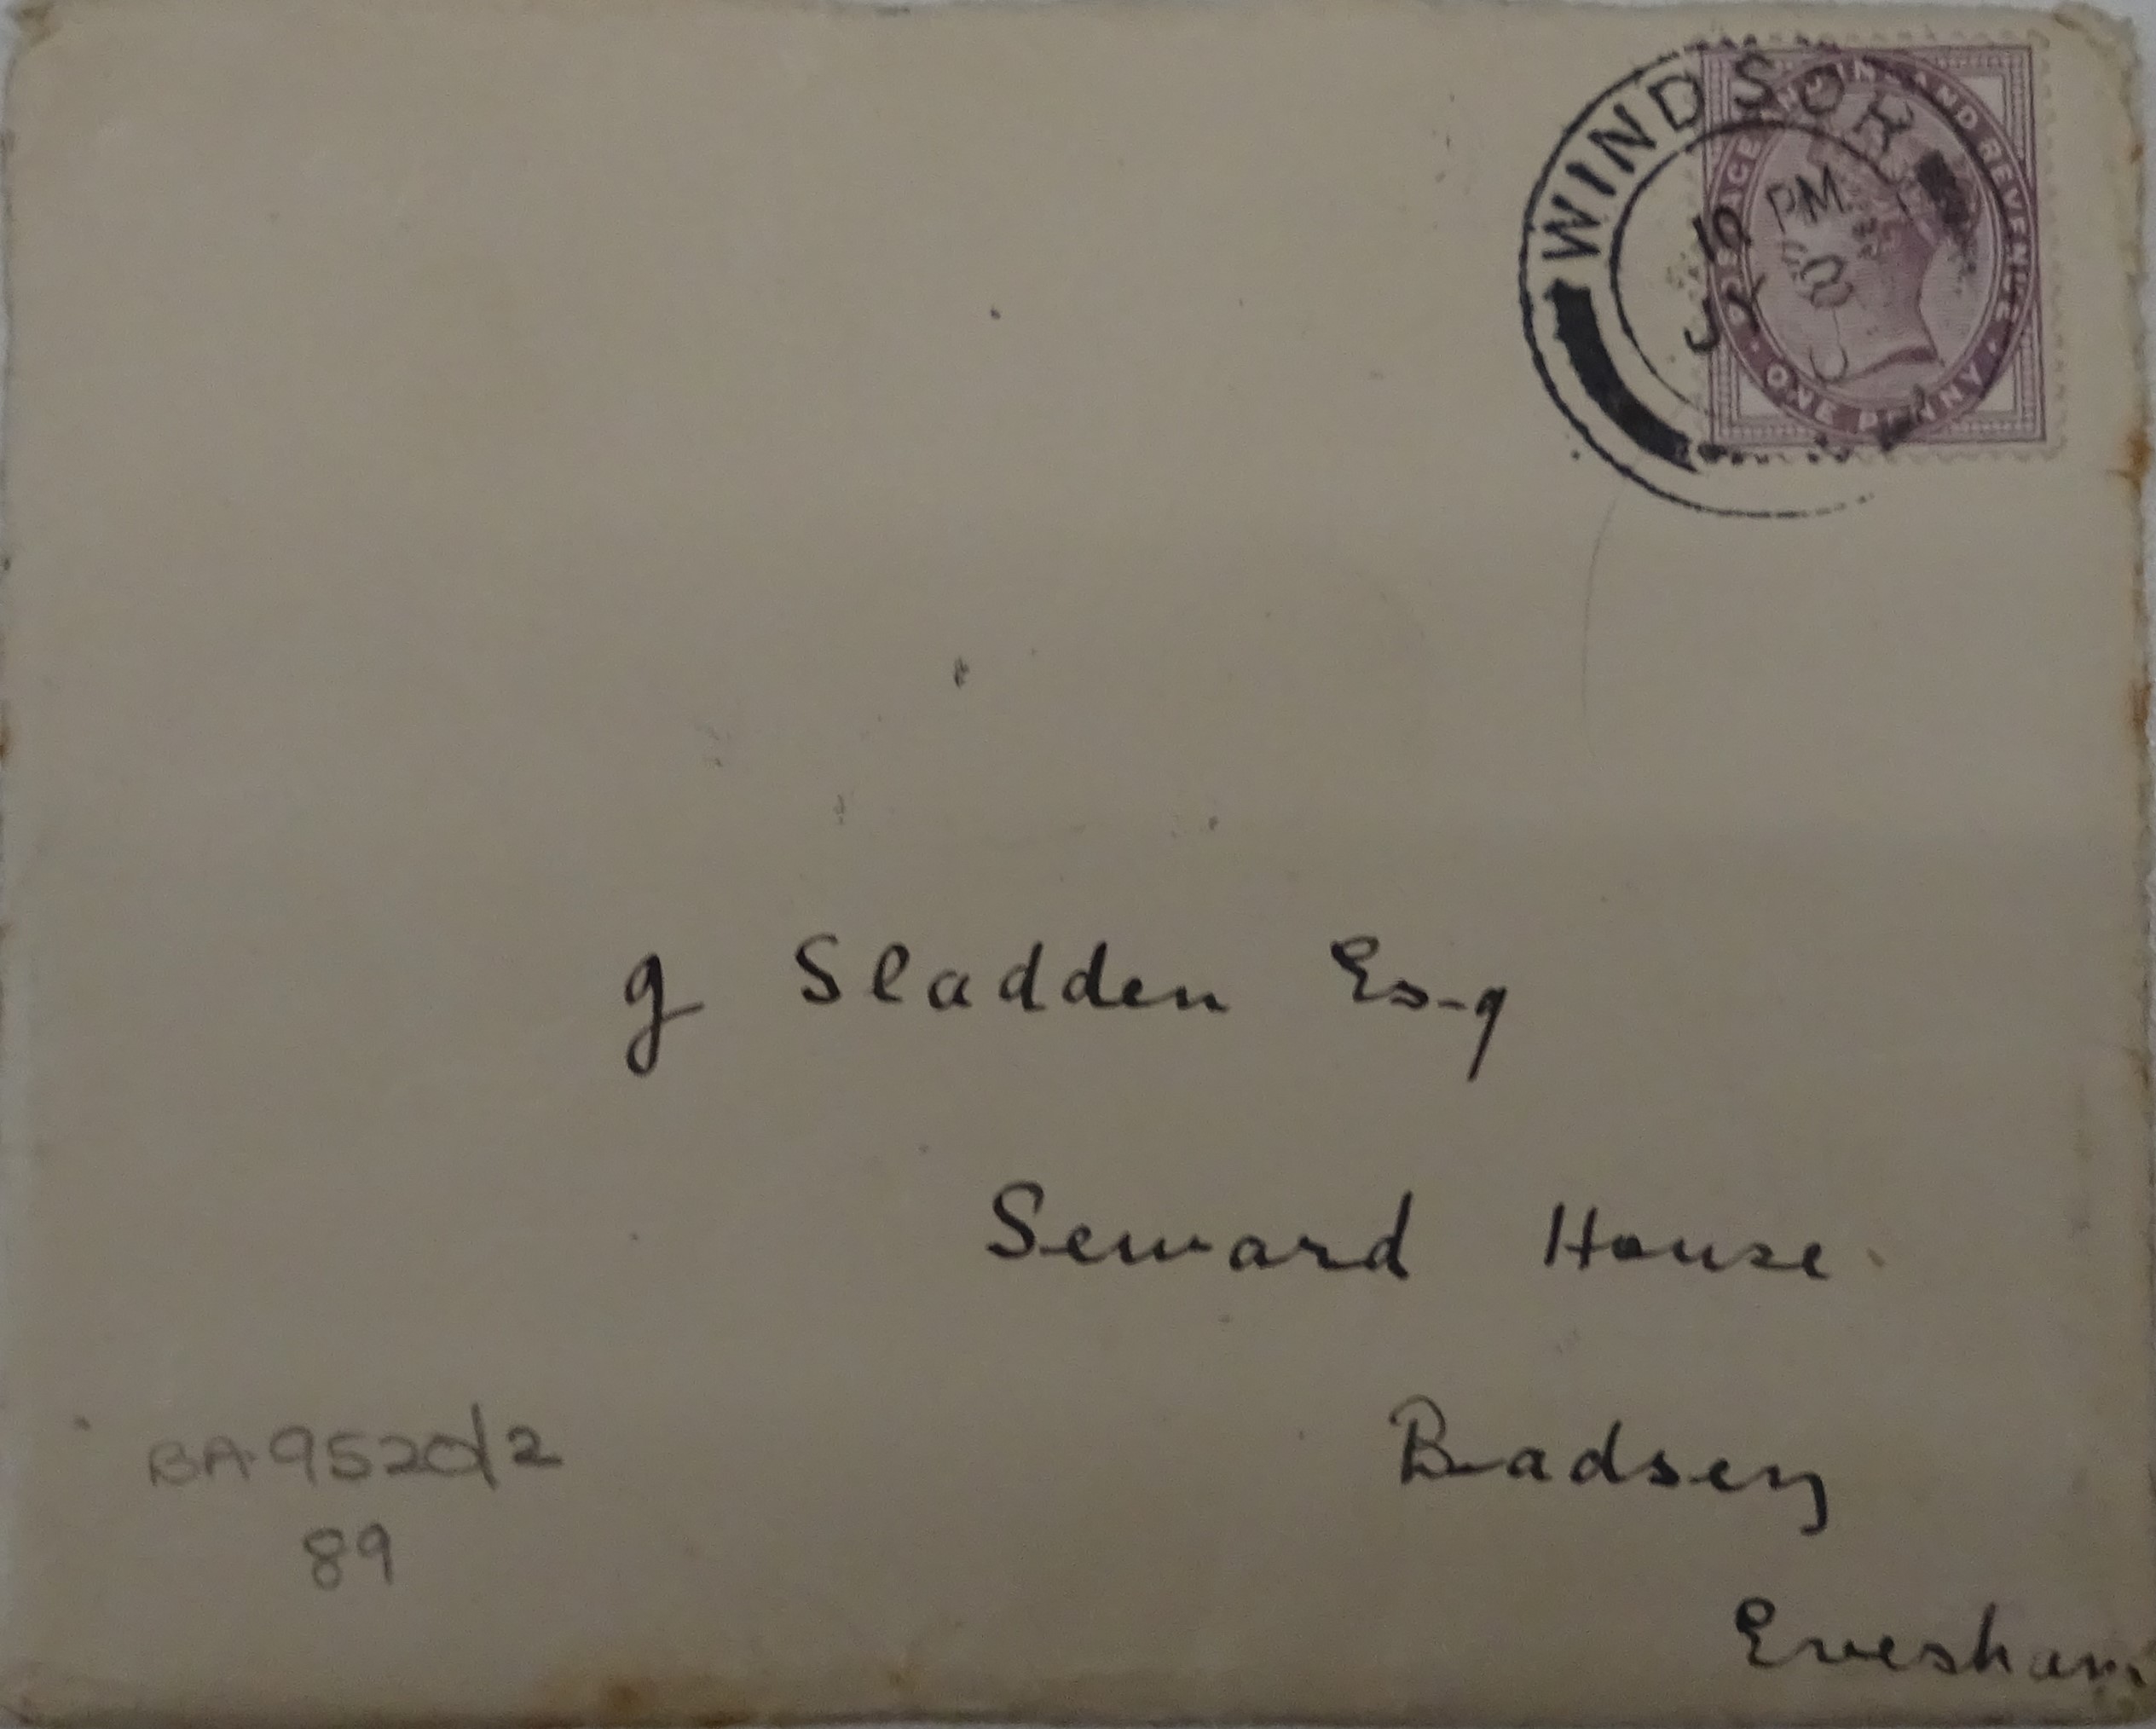 WINDSOR
PM
JY
POSTAGE AND REVENUE
ONE PENNY
J Sladden Esq
Seward House
Badsey
Evesham
BA 9520/2
89